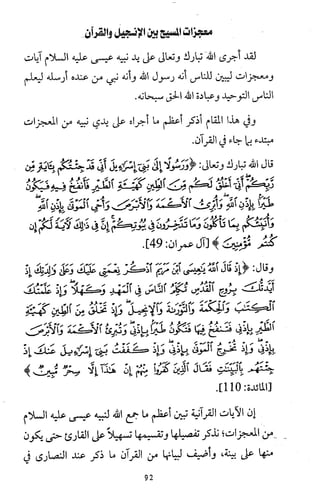 معجزات المسيح بين الإنجيل والقرآن
لقد أجرى الله تبارك وتعالى على يد نبيه عيسى عليه السلام آيات
ومعجزات ليبين للناس أنه رسول الله وأنه نبي من عنده أرسله ليعلم
الناس التوحيد وعبادة الله الحق سبحانه.
وفي هذا المقام أذكر أعظم ما أجراه على يدي نبيه من المعجزات
مبتدء بما جاء في القرآن.
قال الله تبارك وتعالى: ﴿وَرَسُولًا إِلَىٰ بَنِي إِسْرَٰٓءِيلَ أَنِّي قَدْ جِئْتُكُم بِـَٔايَةٍ مِّن
رَّبِّكُمْ أَنِّيٓ أَخْلُقُ لَكُم مِّنَ ٱلطِّينِ كَهَيْـَٔةِ ٱلطَّيْرِ فَأَنفُخُ فِيهِ فَيَكُونُ
طَيْرًۢا بِإِذْنِ ٱللَّهِ وَأُبْرِئُ ٱلْأَكْمَهَ وَٱلْأَبْرَصَ وَأُحْيِ ٱلْمَوْتَىٰ بِإِذْنِ ٱللَّهِ
وَأُنَبِّئُكُم بِمَا تَأْكُلُونَ وَمَا تَدَّخِرُونَ فِي بُيُوتِكُمْ إِنَّ فِي ذَٰلِكَ لَـَٔايَةً لَّكُمْ إِن
كُنتُم مُّؤْمِنِينَ﴾ [آل عمران: 49].
وقال: ﴿إِذْ قَالَ ٱللَّهُ يَٰعِيسَى ٱبْنَ مَرْيَمَ ٱذْكُرْ نِعْمَتِي عَلَيْكَ وَعَلَىٰ وَٰلِدَتِكَ إِذْ
أَيَّدتُّكَ بِرُوحِ ٱلْقُدُسِ تُكَلِّمُ ٱلنَّاسَ فِي ٱلْمَهْدِ وَكَهْلًا وَإِذْ عَلَّمْتُكَ
ٱلْكِتَٰبَ وَٱلْحِكْمَةَ وَٱلتَّوْرَىٰةَ وَٱلْإِنجِيلَ وَإِذْ تَخْلُقُ مِنَ ٱلطِّينِ كَهَيْـَٔةِ
ٱلطَّيْرِ بِإِذْنِي فَتَنفُخُ فِيهَا فَتَكُونُ طَيْرًۢا بِإِذْنِي وَتُبْرِئُ ٱلْأَكْمَهَ وَٱلْأَبْرَصَ
بِإِذْنِي وَإِذْ تُخْرِجُ ٱلْمَوْتَىٰ بِإِذْنِي وَإِذْ كَفَفْتُ بَنِيٓ إِسْرَٰٓءِيلَ عَنكَ إِذْ
جِئْتَهُم بِٱلْبَيِّنَٰتِ فَقَالَ ٱلَّذِينَ كَفَرُوا۟ مِنْهُمْ إِنْ هَٰذَآ إِلَّا سِحْرٌ مُّبِينٌ﴾
[المائدة: 110].
إن الآيات القرآنية تبين أعظم ما جمع الله لنبيه عيسى عليه السلام
من المعجزات؛ نذكر تفصيلها وتقسيمها تسهيلاً على القارئ حتى يكون
منها على بينة، وأضيف لبيانها من القرآن ما ذكر عند النصارى في
92